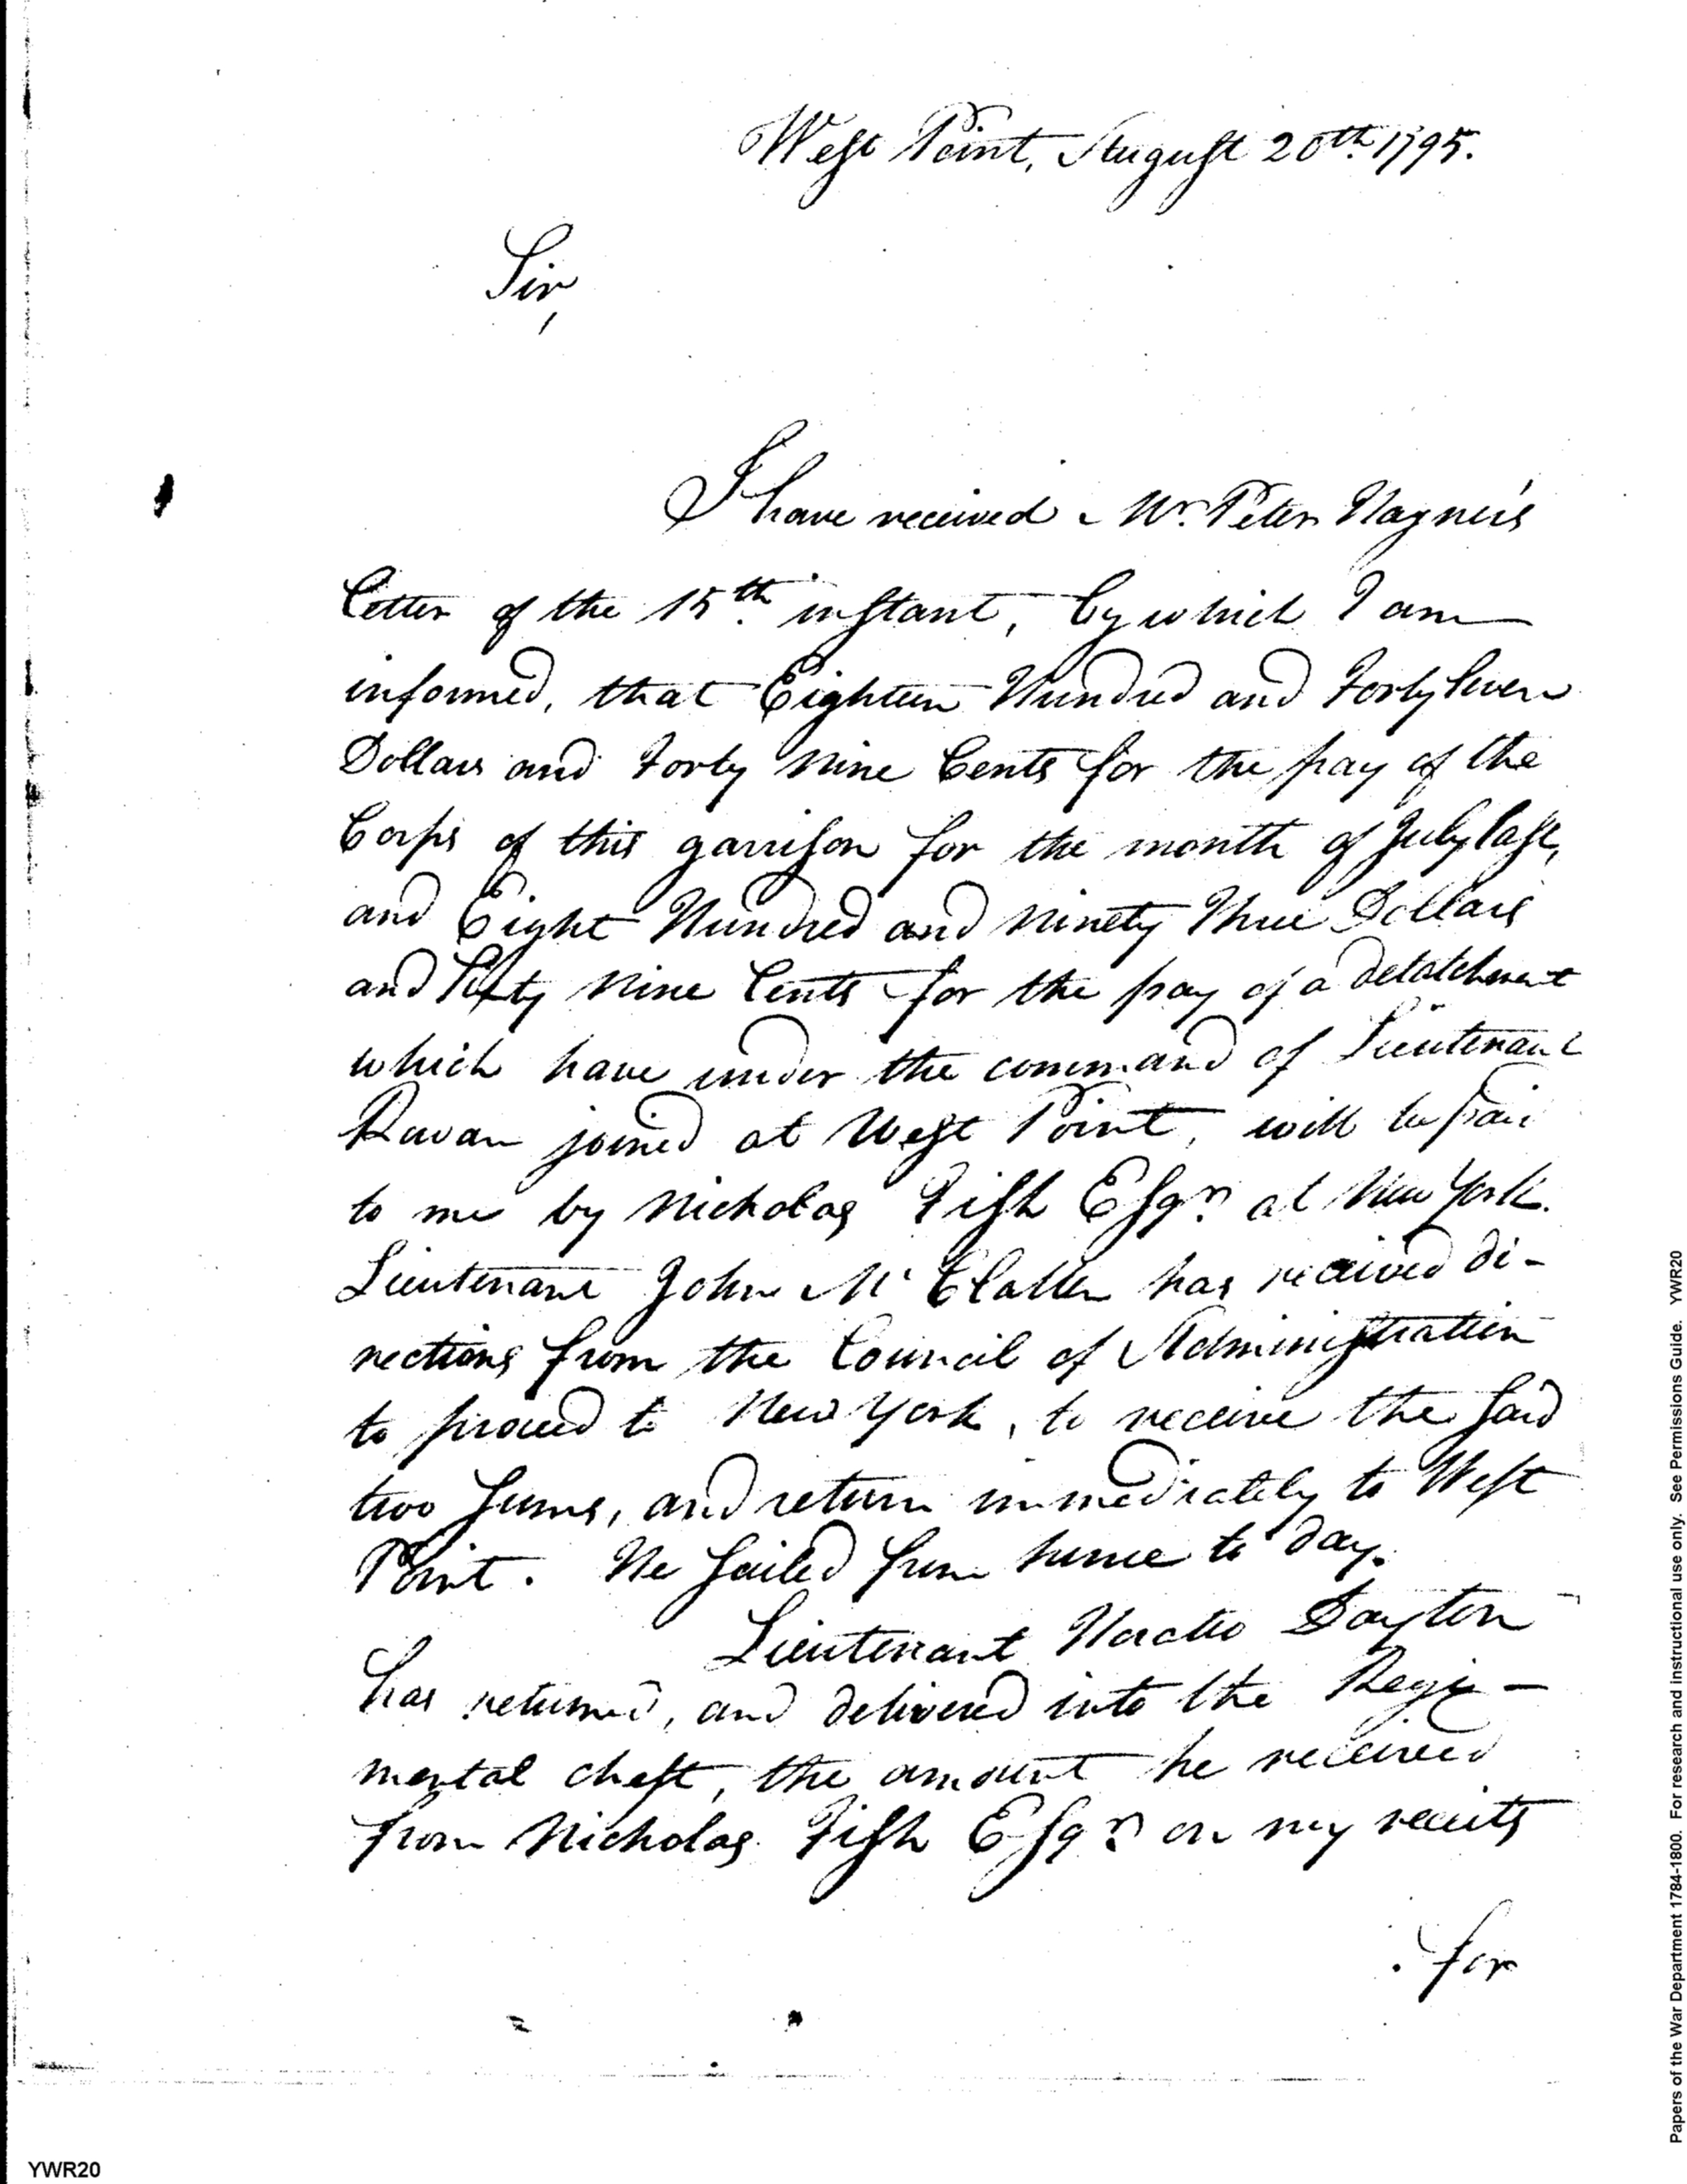 West Point, August 20th. 1795.
Sir,
I have received Mr. Peter Hagner's
letter of the 15th. instant, by which I am
informed, that Eighteen Hundred and Forty Seven
Dollars and Forty Nine Cents for the pay of the
Corps of this garrison for the month of July last,
and Eight Hundred and Ninety Three Dollars
and Nine Cents for the pay of a detatchment
which have under the command of Lieutenant
joined at West Point, will be paid
to me by Nicholas Fish Esqr. at New York.
Lieutenant John Mc Clallen has received di-
rections from the Council of Administration
to proceed to New York, to receive the said
two sums, and return immediately to West
Point. He sailed from hence to day.
Lieutenant Dayton
has returned, and delivered into the Regi-
mental chest, the amount he received
from Nicholas Fish Esqr. on my receits
for
YWR20
Papers of the War Department 1784-1800. For research and instructional use only. See Permissions Guide. YWR20